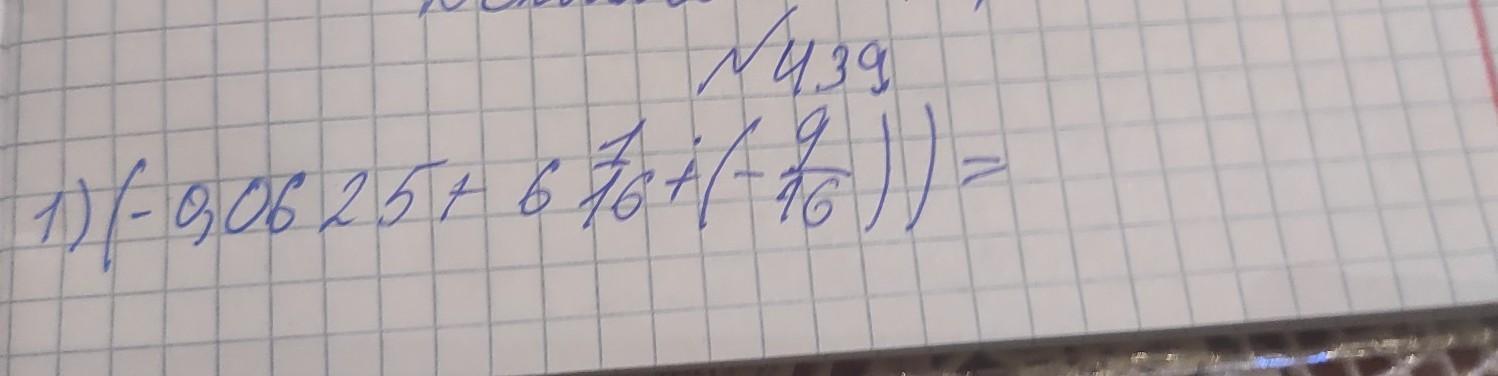 №439
1) (-0,0625+ 6 1/16 + (- 9/16)) =